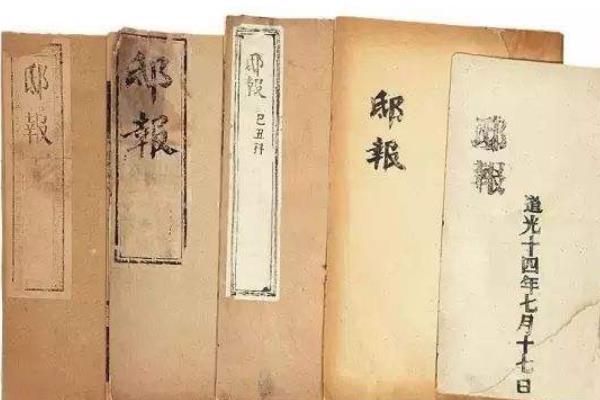 邸報
邸報
邸報
己丑科
邸報
邸報
道光十四年七月十七日